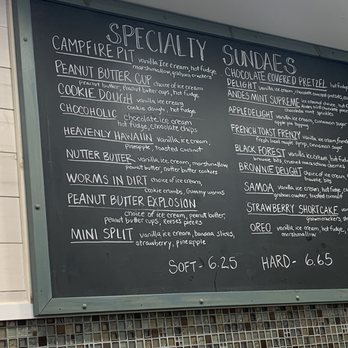 SPECIALTY SUNDAES
CAMPFIRE PIT vanilla ice cream, hot fudge,
marshmallow, graham crackers
PEANUT BUTTER CUP choice of ice cream
peanut butter, peanut butter cups, hot fudge
COOKIE DOUGH vanilla ice cream,
cookie dough, hot fudge
CHOCOHOLIC chocolate ice cream
hot fudge, chocolate chips
HEAVENLY HAWAIIN vanilla ice cream,
pineapple, toasted coconut
NUTTER BUTTER vanilla ice cream, marshmallow
peanut butter, nutter butter cookies
WORMS IN DIRT choice of ice cream,
cookie crumbs, gummy worms
PEANUT BUTTER EXPLOSION
choice of ice cream, peanut butter,
peanut butter cups, reeses pieces
MINI SPLIT vanilla ice cream, banana slices,
strawberry, pineapple
CHOCOLATE COVERED PRETZEL
DELIGHT vanilla ice cream, chocolate covered pretzels
ANDES MINT SUPREME
APPLE DELIGHT vanilla ice cream,
FRENCH TOAST FRENZY vanilla ice cream,
BLACK FOREST vanilla ice cream, hot fudge,
BROWNIE DELIGHT choice of ice cream,
brownie bite, hot fudge
SAMOA vanilla ice cream, hot fudge,
graham cracker, toasted coconut
STRAWBERRY SHORTCAKE
OREO vanilla ice cream, hot fudge,
marshmallow
SOFT- 6.25 HARD- 6.65